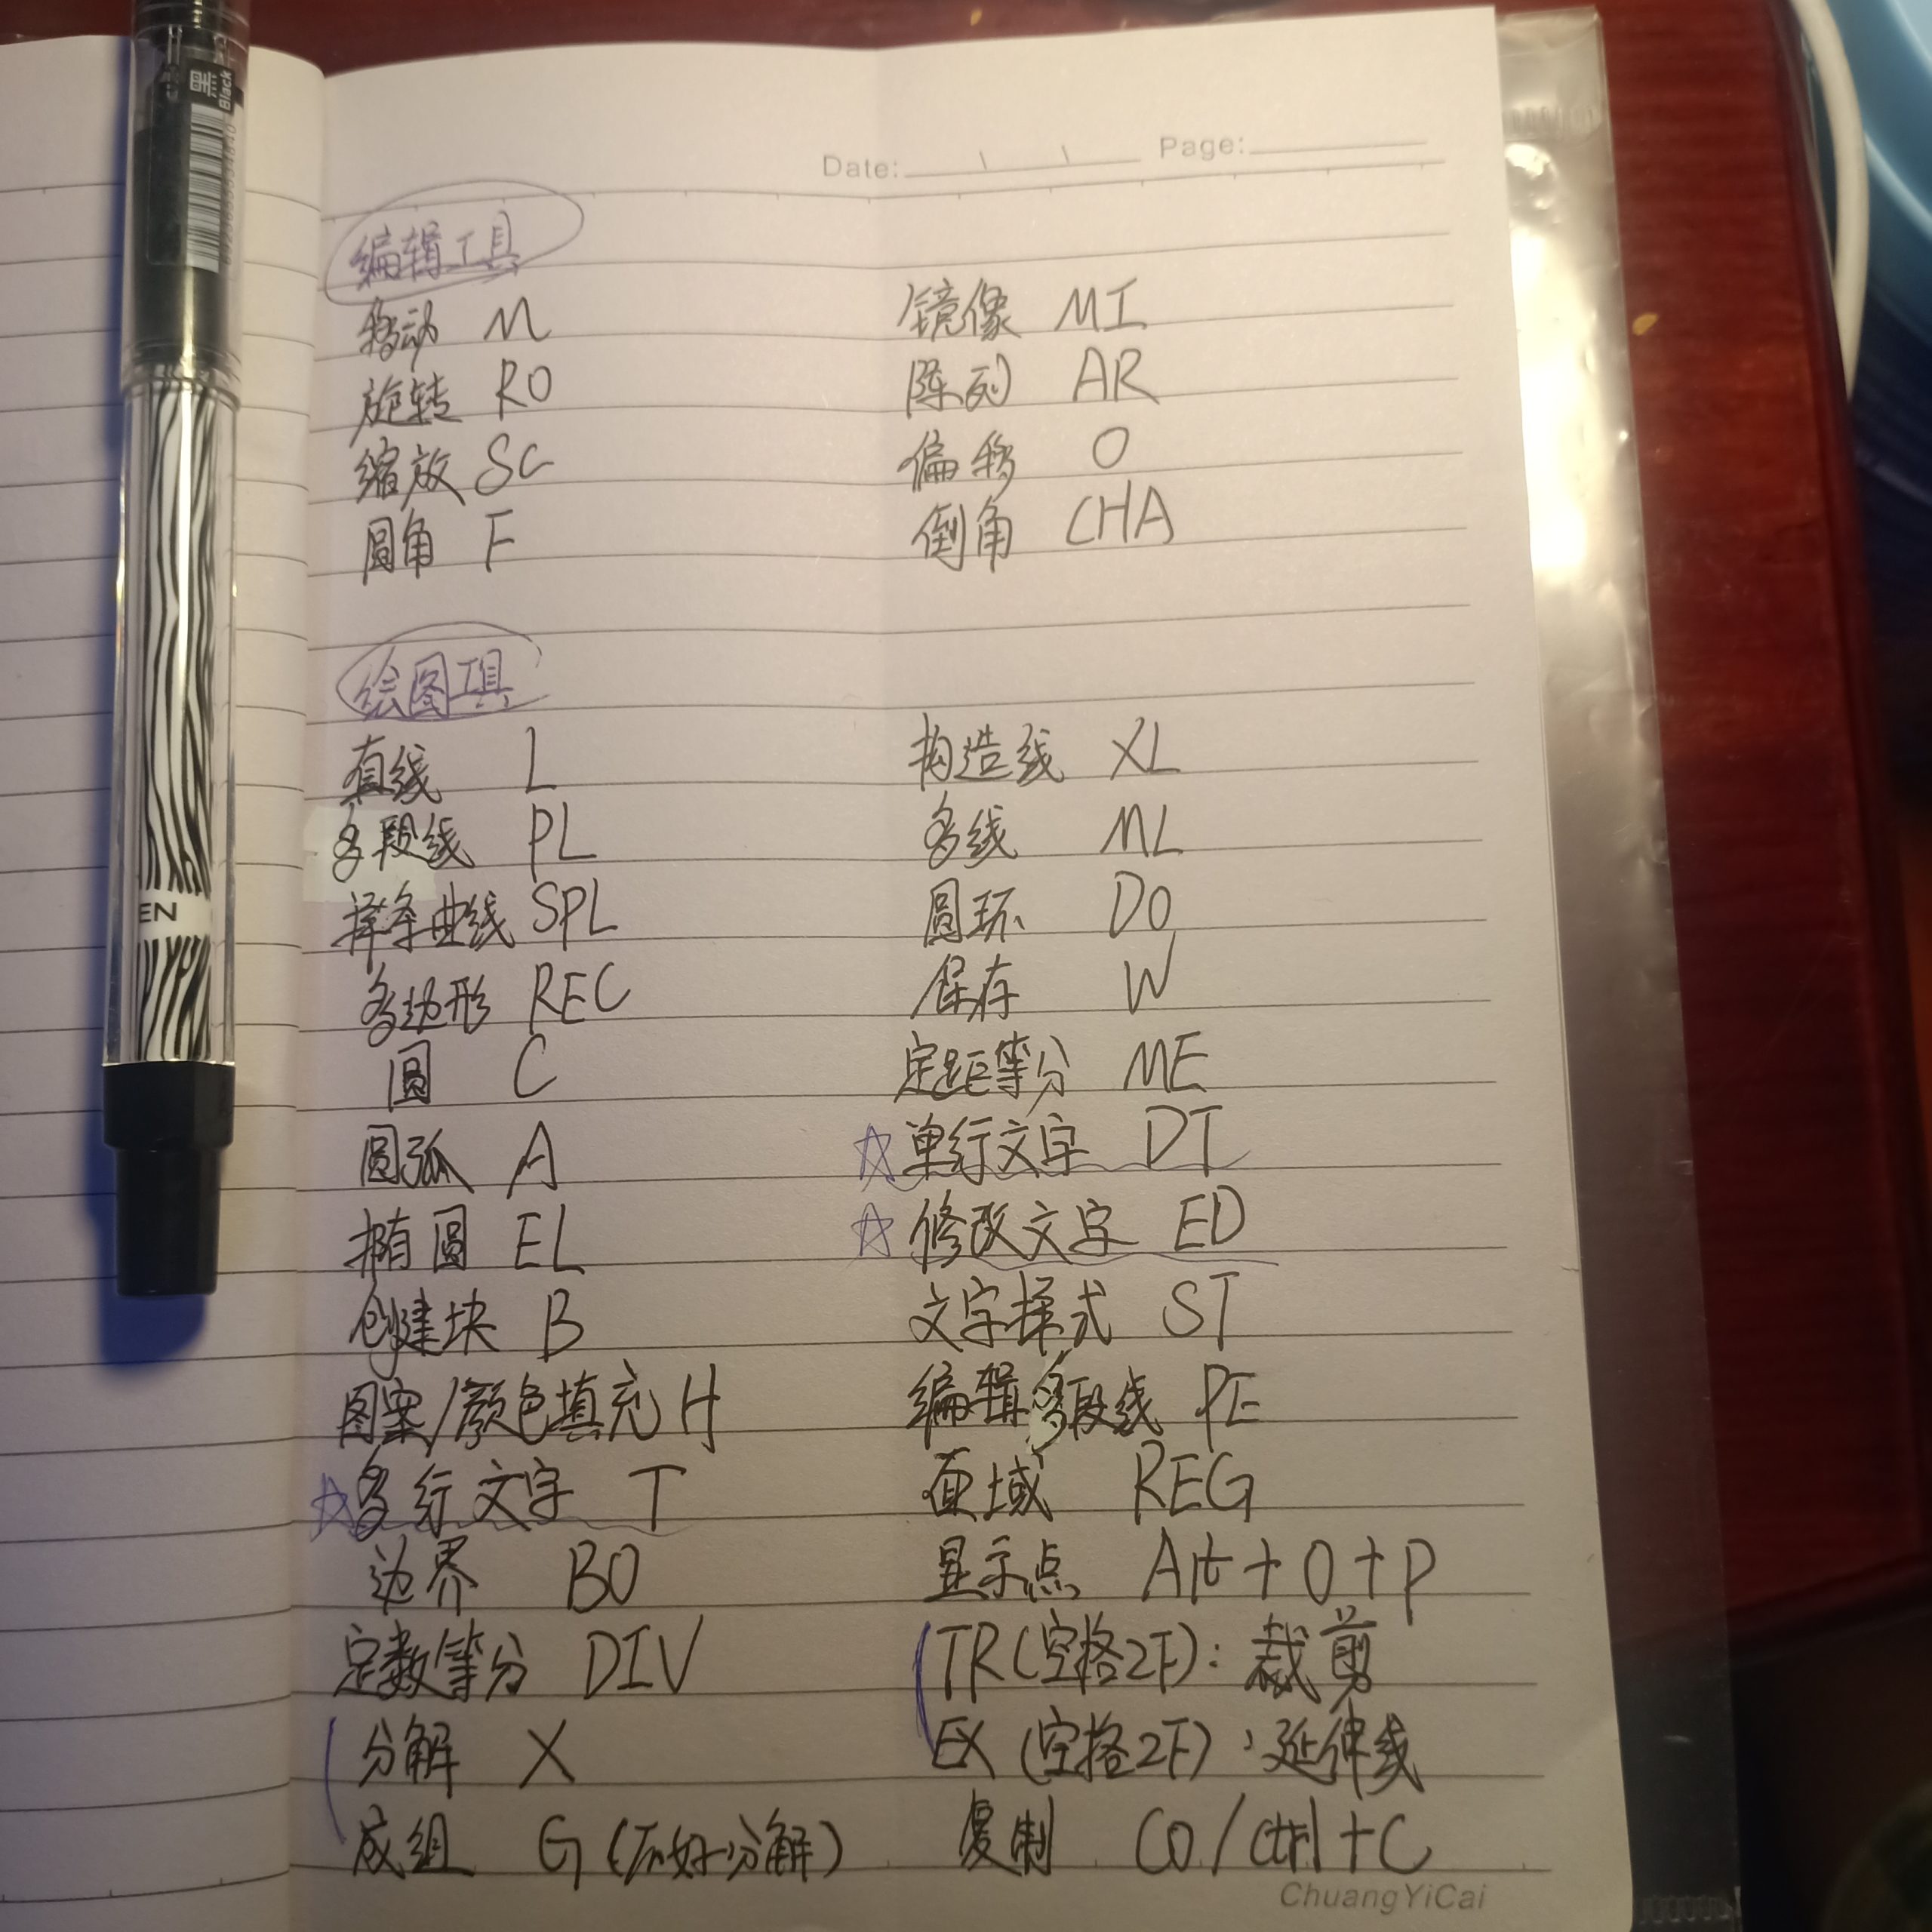 Date: Page:
编辑工具
移动 M 镜像 MI
旋转 RO 阵列 AR
缩放 SC 偏移 O
圆角 F 倒角 CHA
绘图工具
直线 L 构造线 XL
多段线 PL 多线 ML
样条曲线 SPL 圆环 DO
多边形 REC 保存 W
圆 C 定距等分 ME
圆弧 A ☆单行文字 DT
椭圆 EL ☆修改文字 ED
创建块 B 文字样式 ST
图案/颜色填充 H 编辑多段线 PE
☆多行文字 T 面域 REG
边界 BO 显示点 Alt+O+P
定数等分 DIV TR(空格2下):裁剪
分解 X EX(空格2下):延伸线
成组 G(不好分解) 复制 CO/ctrl+C
ChuangYiCai
黑 Black
EN